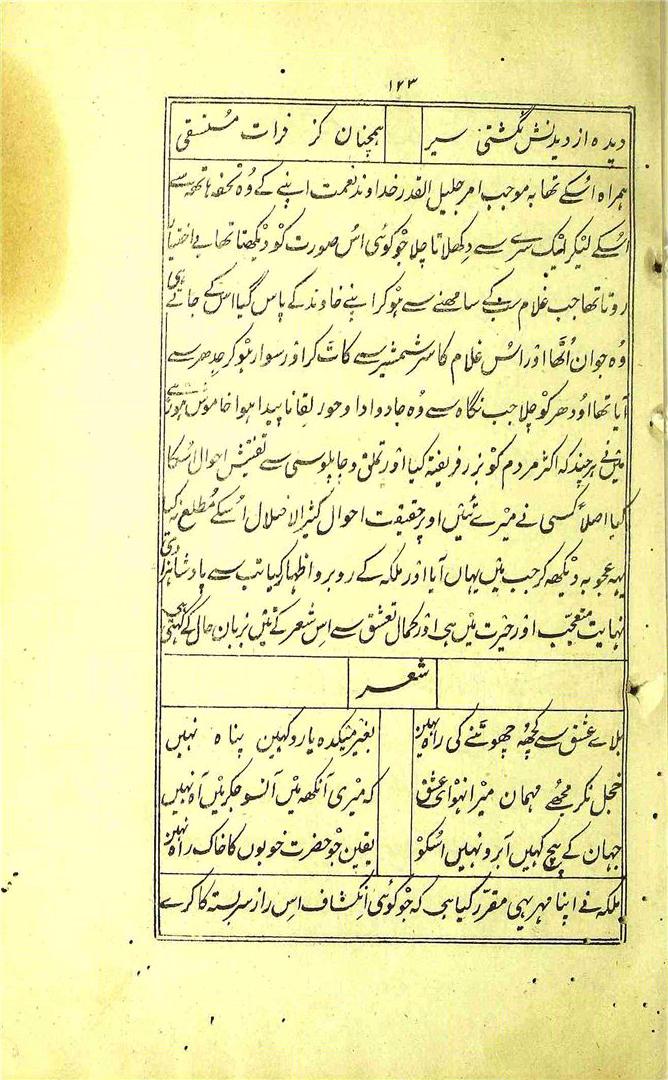 ۱۲۳
دیدہ از دیدنش نگشتی سیر ہمچنان کز فرات مستسقی
ہمراہ اُسکے تھا بہ موجب امر جلیل القدر خداوند نعمت اپنے کے وُہ تحفہ ہاتھہ سے
اُسکے لیکر ایک سرے سے دِکھلاتا چلا جو کوئی اُس صورت کو دیکھتا تھا بے اختیار
روتا تھا جب غلام سب کے سامھنے سے ہو کر اپنے خاوند کے پاس گیا اس کے جاتے ہی
وُہ جوان اُٹھا اور اُس غلام کا سر شمشیر سے کاٹ کر اور سوار ہو کر جدھر سے
آیا تھا اودھر کو چلا جب نگاہ سے وُہ جادو ادا و حور لقا ناپیدا ہوا خاموش ہوئے
مَیں نے ہر چند کہ اکثر مردم کو بزر فریفتہ کیا اور تملق و چاپلوسی سے تفتیش احوال اُسکا
کیا اصلاً کسی نے میرے تئیں اوپر حقیقت احوال کثیر الاختلال اُسکے مطلع نہ کیا
یہہ عجوبہ دیکھہ کر جب مَیں یہاں آیا اور ملکہ کے روبرو اظہار کیا تب سے پادشاہزادی
نہایت متعجّب اور حیرت میں ہی اور کمال تعشق سے اِس شعر کے تئیں بزبان حال کے کہتی ہی
شعر
بلاے عشق سے کچھہ چھوٹنے کی راہ نہیں بغیر میکدہ یارو کہیں پناہ نہیں
خجل نکر مجھے مہمان میرا ہو اے عشق کہ میری آنکھہ میں آنسو جگر میں آہ نہیں
جہان کے بیچ کہیں آبرو نہیں اُسکو یقین جو حضرت خوبوں کا خاک راہ نہیں
ملکہ نے اپنا مہر یہی مقرّر کیا ہی کہ جو کوئی اِنکشاف اِس راز سربستہ کا کرے